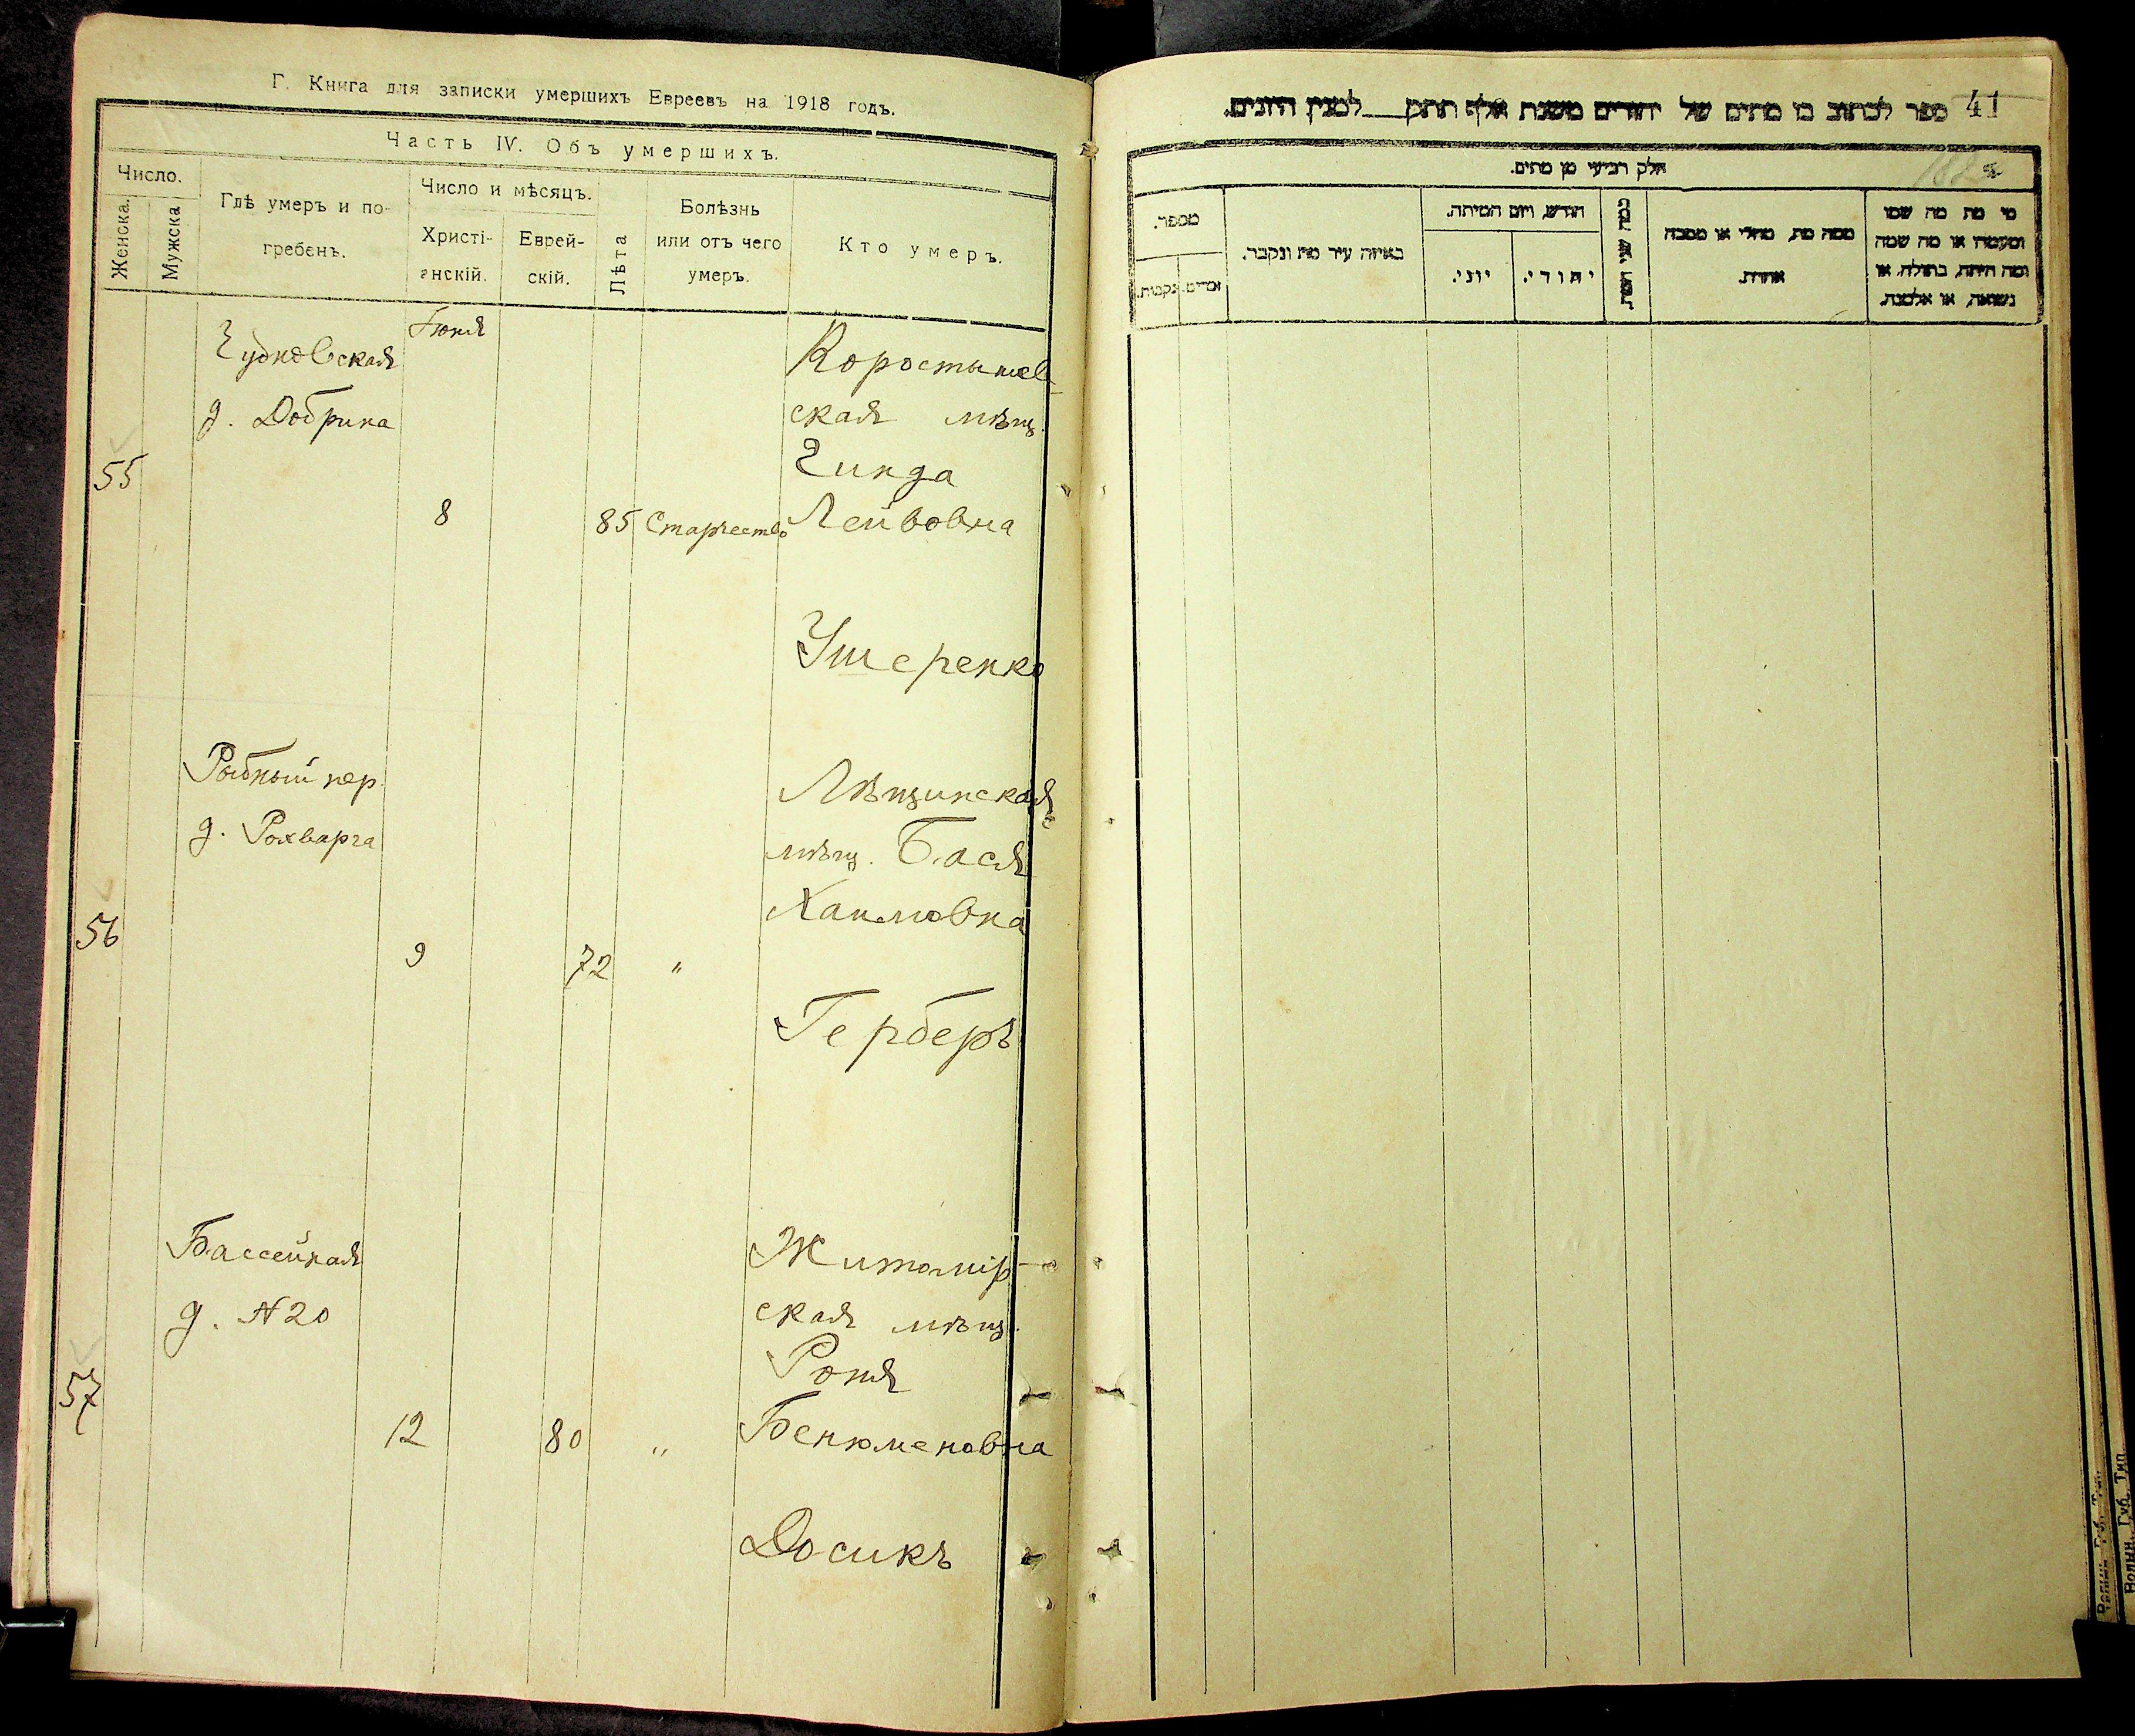 Г. Книга для записки умершихъ Евреевъ на 1918 годъ.
Часть IV. Объ умершихъ.
Число.
Женска.
Мужска
Гдѣ умеръ и по-
гребенъ.
Число и мѣсяцъ.
Христі-
анскій.
Еврей-
скій.
Лѣта
Болѣзнь
или отъ чего
умеръ.
Кто умеръ.
55
Чудновская
д. Добрина
Іюня
8
85
Старчество
Коростышев
ская мѣщ.
Чипда
Лейбовна
Ушеренко
56
Рыбный пер.
д. Рохварга
9
72
"
Лѣщинская
мѣщ. Бася
Хаимовна
Герберъ
57
Бассейная
д. № 20
12
80
"
Житомір-
ская мѣщ.
Роня
Бенюменовна
Досикъ
41
ספר לכתוב בו מתים של יהודים משנת אלף תתק לממנין היונים.
חלק רביעי מן מתים.
מספר.
זכרים.
נקבות.
באיזה עיר מת ונקבר.
חודש, ויום המיתה.
יוני.
יהודי.
כמה שני חייו.
ממה מת, מחלי או מסבה
אחרת.
מי מת מה שמו
ומעמדו או מה שמה
ומה היתה, בתולה, או
נשואה, או אלמנה.
Волын. Губ. Тип.